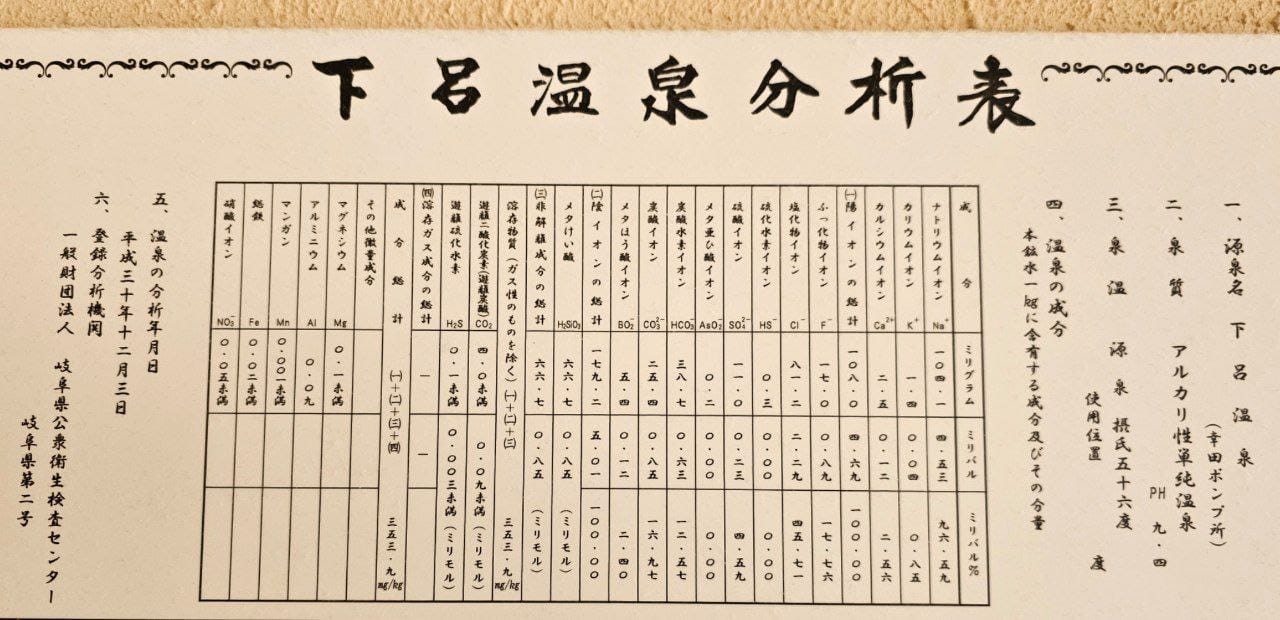 下呂温泉分析表
一、源泉名 下呂温泉
(幸田ポンプ所)
二、泉質 アルカリ性単純温泉
PH 九・四
三、泉温 源泉 摂氏五十六度
使用位置 度
四、温泉の成分
本鉱水一kgに含有する成分及びその分量
成分 ミリグラム ミリバル ミリバル%
ナトリウムイオン Na⁺ 一〇四・一 四・五三 九六・五九
カリウムイオン K⁺ 一・四 〇・〇四 〇・八五
カルシウムイオン Ca²⁺ 二・五 〇・一二 二・五六
㈠陽イオンの総計 一〇八・〇 四・六九 一〇〇・〇〇
ふっ化物イオン F⁻ 一七・〇 〇・八九 一七・七六
塩化物イオン Cl⁻ 八一・二 二・二九 四五・七一
硫化水素イオン HS⁻ 〇・三 〇・〇〇 〇・〇〇
硫酸イオン SO₄²⁻ 一一・〇 〇・二三 四・五九
メタ亜ひ酸イオン AsO₂⁻ 〇・二 〇・〇〇 〇・〇〇
炭酸水素イオン HCO₃⁻ 三八・七 〇・六三 一二・五七
炭酸イオン CO₃²⁻ 二五・四 〇・八五 一六・九七
メタほう酸イオン BO₂⁻ 五・四 〇・一二 二・四〇
㈡陰イオンの総計 一七九・二 五・〇一 一〇〇・〇〇
メタけい酸 H₂SiO₃ 六六・七 〇・八五 (ミリモル)
㈢非解離成分の総計 六六・七 〇・八五 (ミリモル)
溶存物質(ガス性のものを除く) ㈠+㈡+㈢ 三五三・九 mg/kg
遊離二酸化炭素(遊離炭酸) CO₂ 四・〇未満 〇・〇九未満 (ミリモル)
遊離硫化水素 H₂S 〇・一未満 〇・〇〇三未満 (ミリモル)
㈣溶存ガス成分の総計 — —
成分総計 ㈠+㈡+㈢+㈣ 三五三・九 mg/kg
その他微量成分
マグネシウム Mg 〇・一未満
アルミニウム Al 〇・〇九
マンガン Mn 〇・〇〇一未満
総鉄 Fe 〇・〇二未満
硝酸イオン NO₃⁻ 〇・〇五未満
五、温泉の分析年月日
平成三十年十二月三日
六、登録分析機関
一般財団法人 岐阜県公衆衛生検査センター
岐阜県第二号